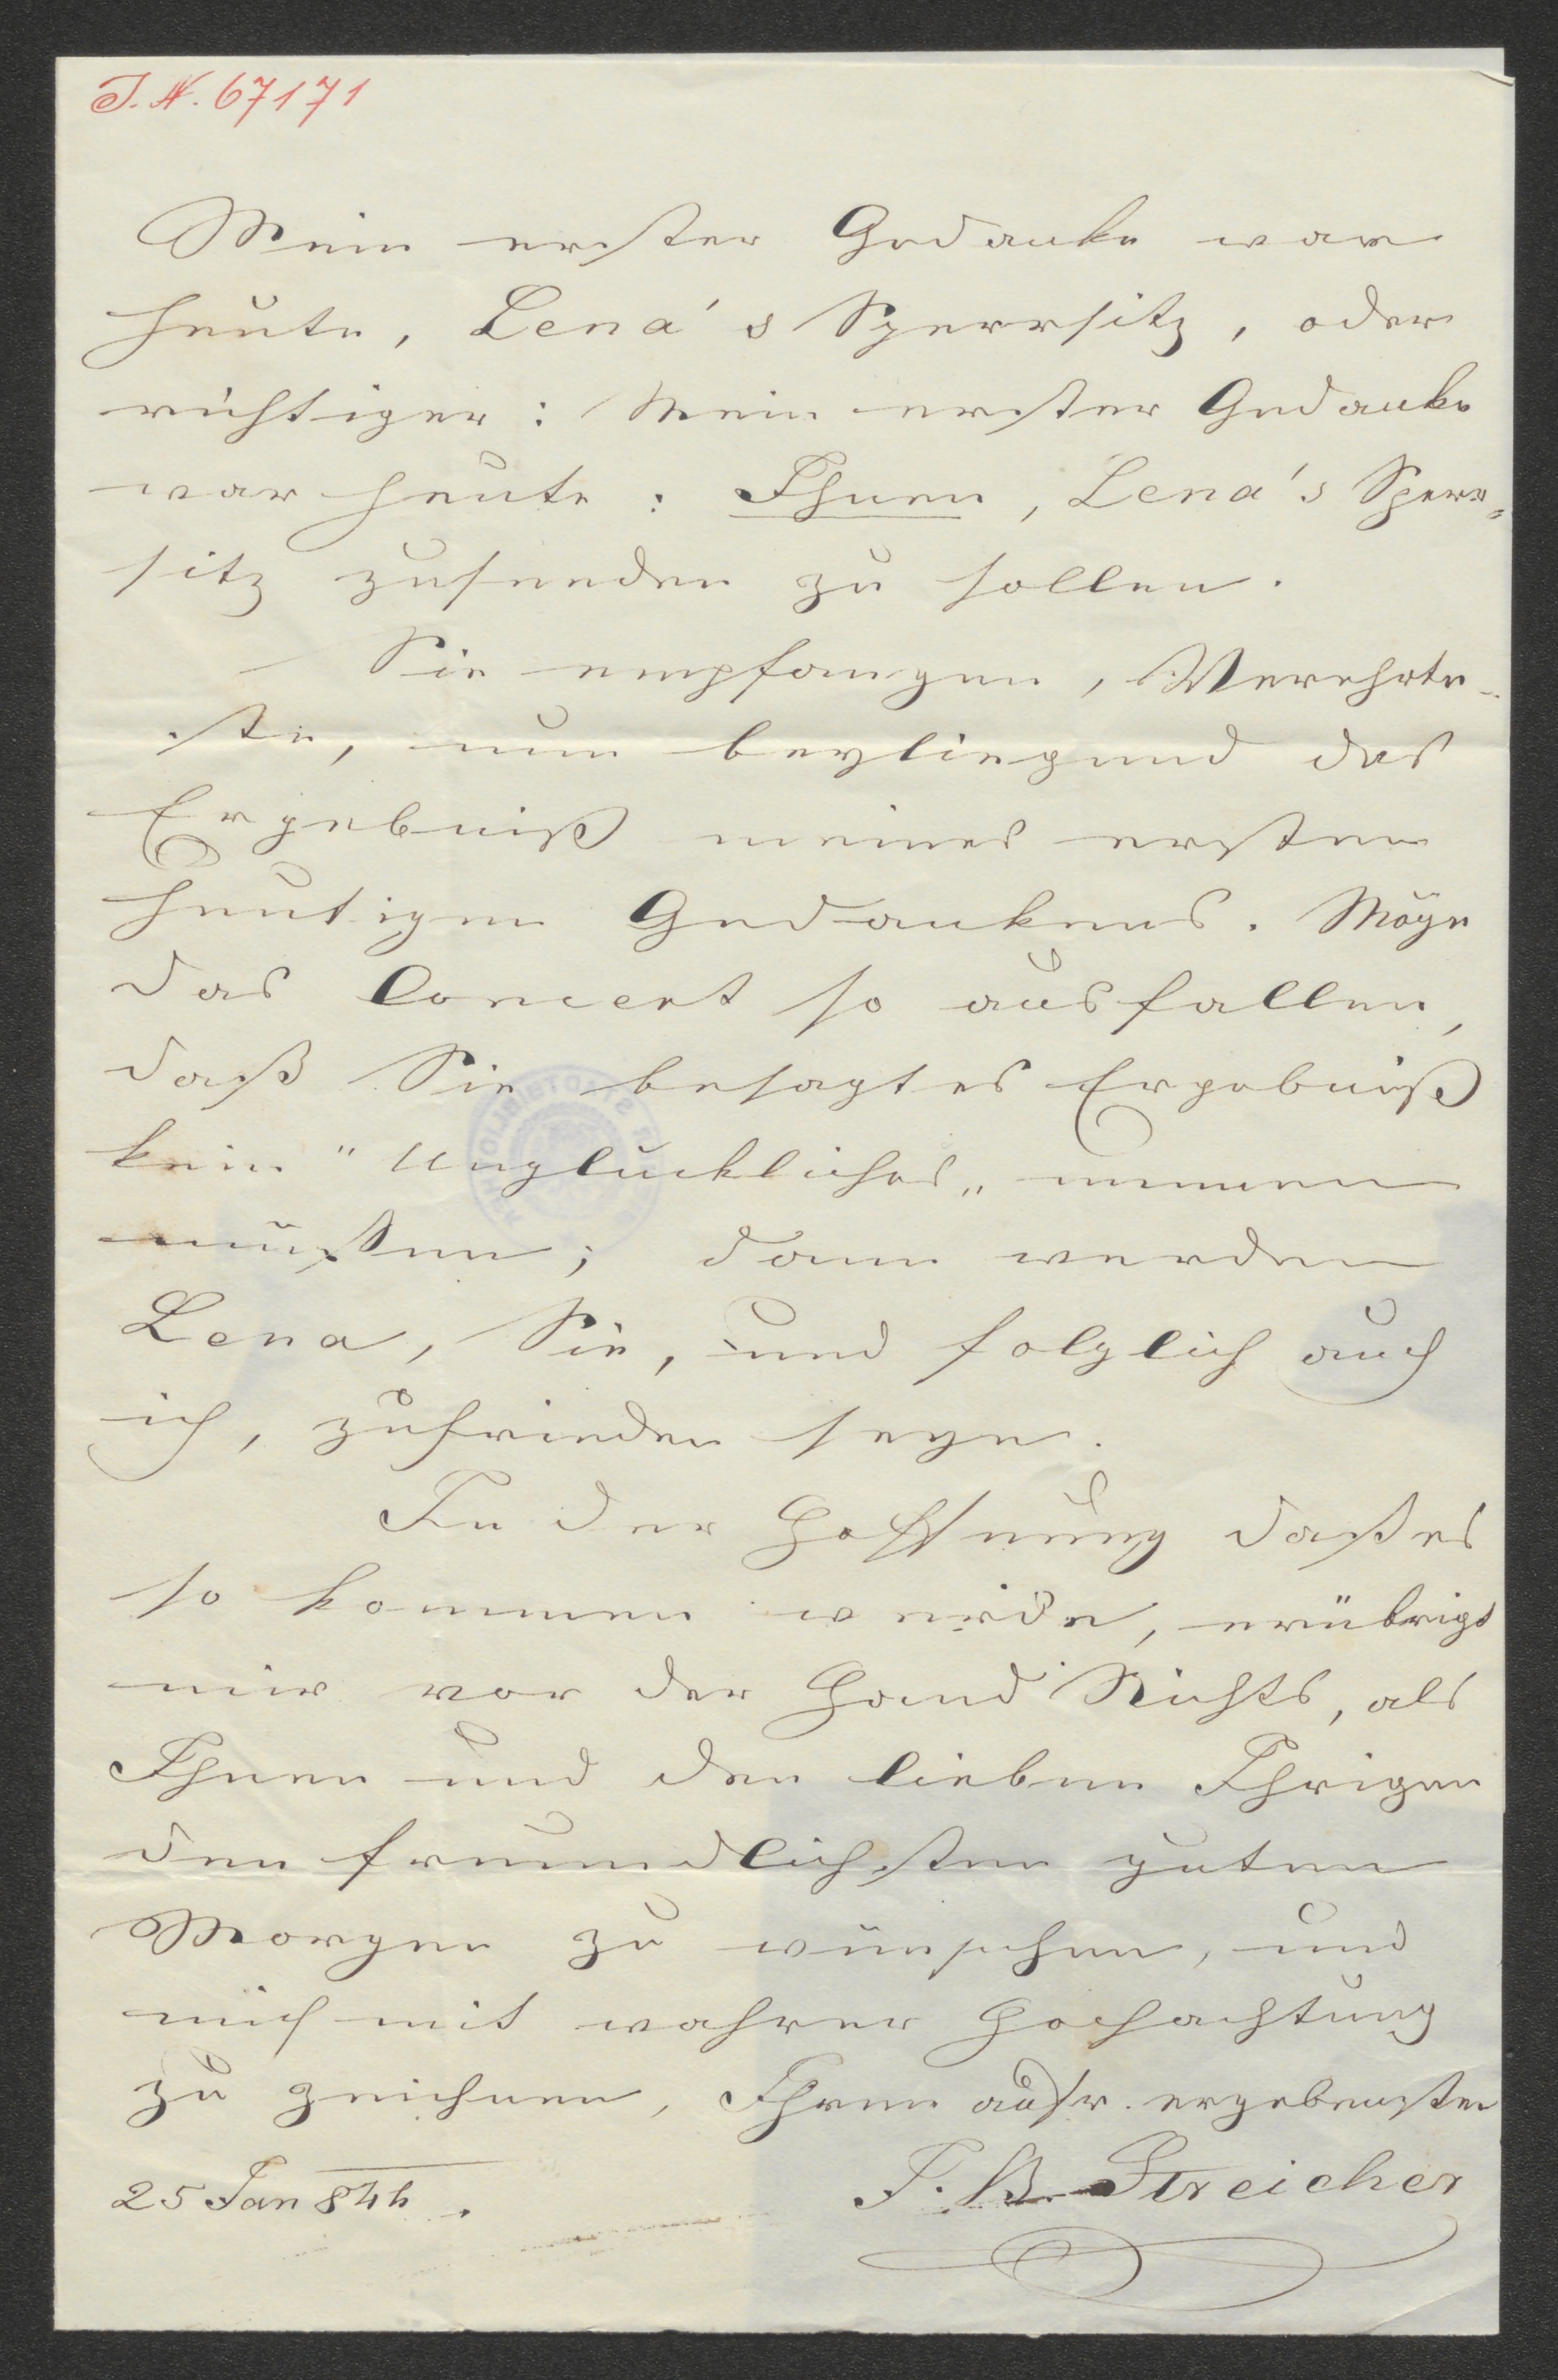 I. N. 67171
Mein erster Gedanke war
heute, Lena's Sperrsitz, oder
richtiger: Mein erster Gedanke
war heute: Ihnen, Lena's Sperr=
sitz zusenden zu sollen.
Sie empfangen, Verehrte-
ste, nun beyliegend das
Ergebniß meines ersten
heutigen Gedankens. Möge
das Concert so ausfallen,
daß Sie besagtes Ergebniß
kein "Unglückliches" nennen
müssen; dann werden
Lena, Sie, und folglich auch
ich, zufrieden seyn.
In der Hoffnung daß es
so kommen würde, erübrigt
mir vor der Hand Nichts, als
Ihnen und den lieben Ihrigen
den freundlichsten guten
Morgen zu wünschen, und
mich mit wahrer Hochachtung
zu zeichnen, Ihren aufr. ergebensten
25 Jan 846. J. B. Streicher